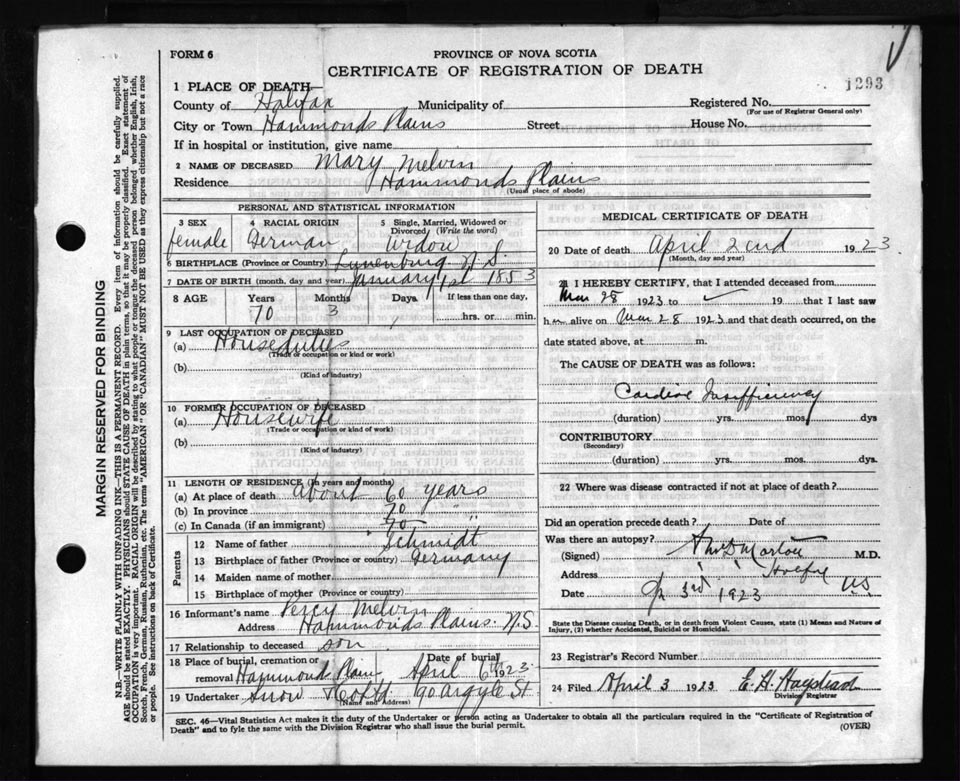 FORM 6
PROVINCE OF NOVA SCOTIA
CERTIFICATE OF REGISTRATION OF DEATH
1293
1 PLACE OF DEATH—
County of Halifax Municipality of Registered No.
(For use of Registrar General only)
City or Town Hammonds Plains Street House No.
If in hospital or institution, give name
2 NAME OF DECEASED Mary Melvin
Residence Hammonds Plains
(Usual place of abode)
PERSONAL AND STATISTICAL INFORMATION
3 SEX 4 RACIAL ORIGIN 5 Single, Married, Widowed or Divorced (Write the word)
female German Widow
6 BIRTHPLACE (Province or Country) Lunenburg N.S.
7 DATE OF BIRTH (month, day and year) January 1st 1853
8 AGE Years Months Days If less than one day,
70 3 hrs. or min.
9 LAST OCCUPATION OF DECEASED
(a) House duties
(Trade or occupation or kind of work)
(b)
(Kind of industry)
10 FORMER OCCUPATION OF DECEASED
(a) Housewife
(Trade or occupation or kind of work)
(b)
(Kind of industry)
11 LENGTH OF RESIDENCE (in years and months)
(a) At place of death about 60 years
(b) In province 70 " "
(c) In Canada (if an immigrant) 70
Parents
12 Name of father Schmidt
13 Birthplace of father (Province or country) Germany
14 Maiden name of mother
15 Birthplace of mother (Province or country)
16 Informant's name Percy Melvin
Address Hammonds Plains. N.S.
17 Relationship to deceased son
18 Place of burial, cremation or removal Hammond Plain Date of burial April 6th 1923.
19 Undertaker Snow & Co Ltd 90 Argyle St
(Name and Address)
MEDICAL CERTIFICATE OF DEATH
20 Date of death April 2cnd 1923
(Month, day and year)
21 I HEREBY CERTIFY, that I attended deceased from
Mar 28 1923 to 19 that I last saw
h alive on Mar 28 1923 and that death occurred, on the
date stated above, at m.
The CAUSE OF DEATH was as follows:
Cardiac Insufficiency
(duration) yrs. mos. dys
CONTRIBUTORY
(Secondary)
(duration) yrs. mos. dys.
22 Where was disease contracted if not at place of death?
Did an operation precede death? Date of
Was there an autopsy?
(Signed) Morton M.D.
Address Halifax
Date 3rd 1923 N.S.
State the Disease causing Death, or in death from Violent Causes, state (1) Means and Nature of
Injury, (2) whether Accidental, Suicidal or Homicidal.
23 Registrar's Record Number
24 Filed April 3 1923 E. H. Haystead
Division Registrar
SEC. 46—Vital Statistics Act makes it the duty of the Undertaker or person acting as Undertaker to obtain all the particulars required in the "Certificate of Registration of
Death" and to fyle the same with the Division Registrar who shall issue the burial permit. (OVER)
MARGIN RESERVED FOR BINDING
N.B.—WRITE PLAINLY WITH UNFADING INK—THIS IS A PERMANENT RECORD. Every item of information should be carefully supplied.
AGE should be stated EXACTLY. PHYSICIANS should STATE CAUSE OF DEATH in plain terms, so that it may be properly classified. Exact statement of
OCCUPATION is very important. RACIAL ORIGIN will be described by stating to what people or tongue the deceased person belonged whether English, Irish,
Scotch, French, German, Russian, Ruthenian, etc. The terms "AMERICAN" OR "CANADIAN" MUST NOT BE USED as they express citizenship but not a race
or people. See instructions on back of Certificate.